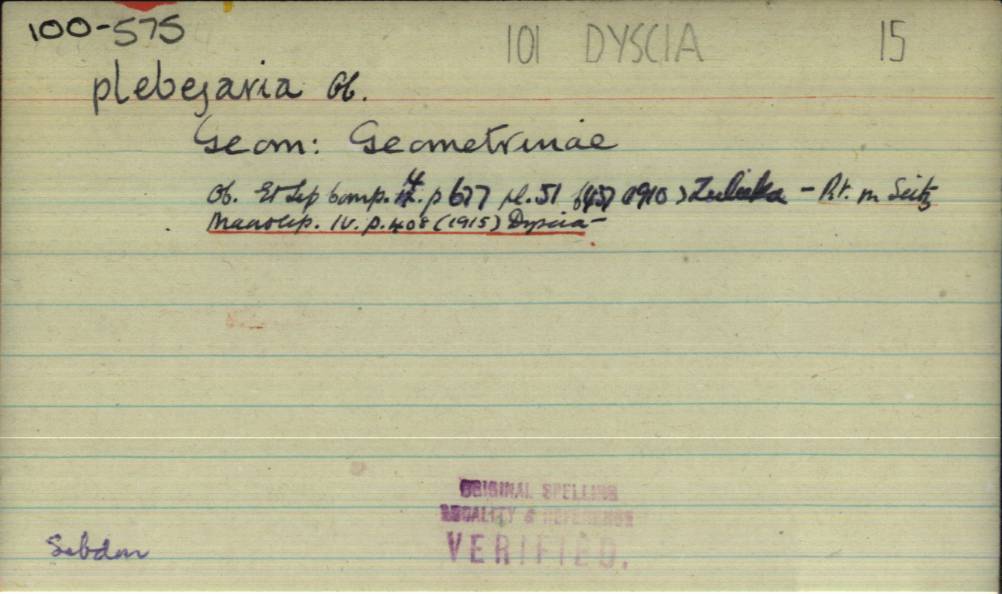 100-575
101 DYSCIA 15
plebejaria Ob.
Geom: Geometrinae
Ob. Et Lep Comp. 4. p 677 pl. 51 f 457 (1910) — Pt. in Seitz
Macrolep. IV. p. 408 (1915) Dyscia —
ORIGINAL SPELLING
LOCALITY & REFERENCE
VERIFIED.